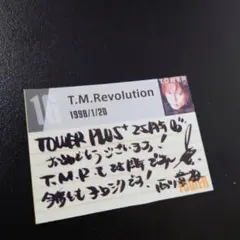 16 T.M.Revolution
1998/1/28
TOWER
TOWER PLUS+ 25周年
おめでとうございます!
T.M.R.も25周年です
今後もヨロシクです!
西川貴教
TOWER